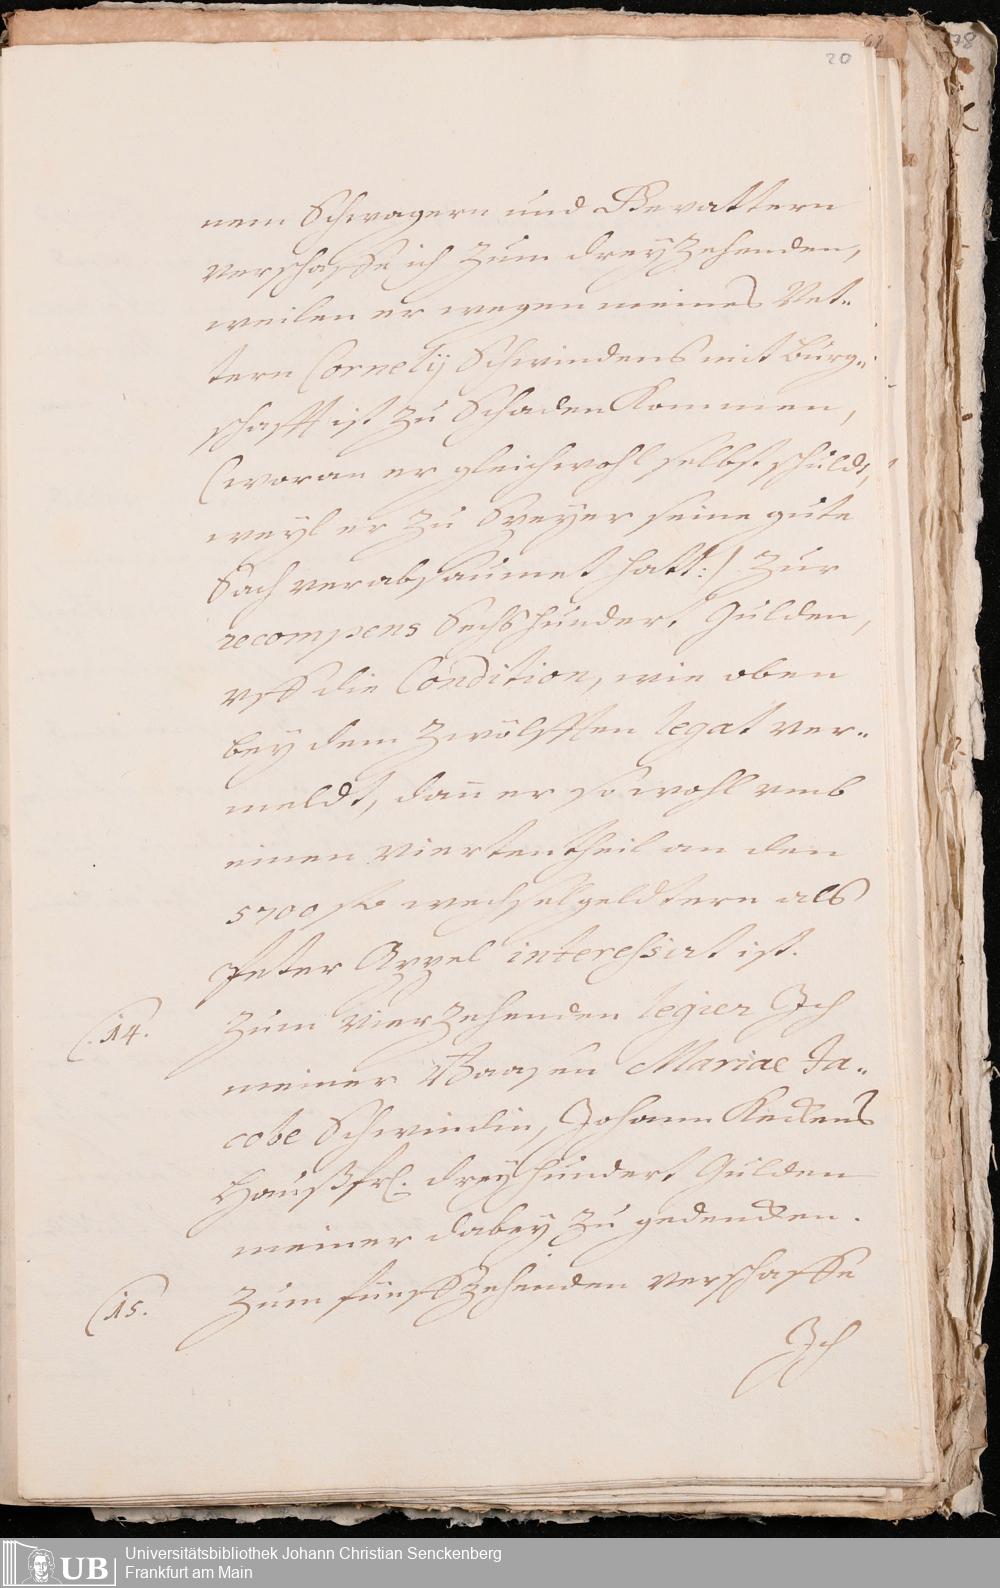 20
nem Schwagern und Gevattern
verschaffe ich zum dreyzehenden,
weilen er wegen meines Vet„
tern Cornely Schwindens mit Bürg„
schafft ist zu Schaden Kommen,
(woran er gleichwohl selbst schuldt,
weyl er zu Speyer seine gute
Sach verabsaumet hatt:/ zur
recompens Sechshundert Gulden,
vff die Condition, wie oben
bey dem zwölfften legat ver„
meldt, dan̄ er so wohl vmb
einen viertentheil an den
5700 wechselgeldtern als
Peter Appel interessirt ist.
(14. zum vierzehenden legier Ich
meiner Baasen Mariae Ja„
cobe Schwindin, Johann
Haußfr. dreyhundert Gulden
meiner dabey zu gedencken.
(15. zum funffzehenden verschaffe
Ich
UB
Universitätsbibliothek Johann Christian Senckenberg
Frankfurt am Main